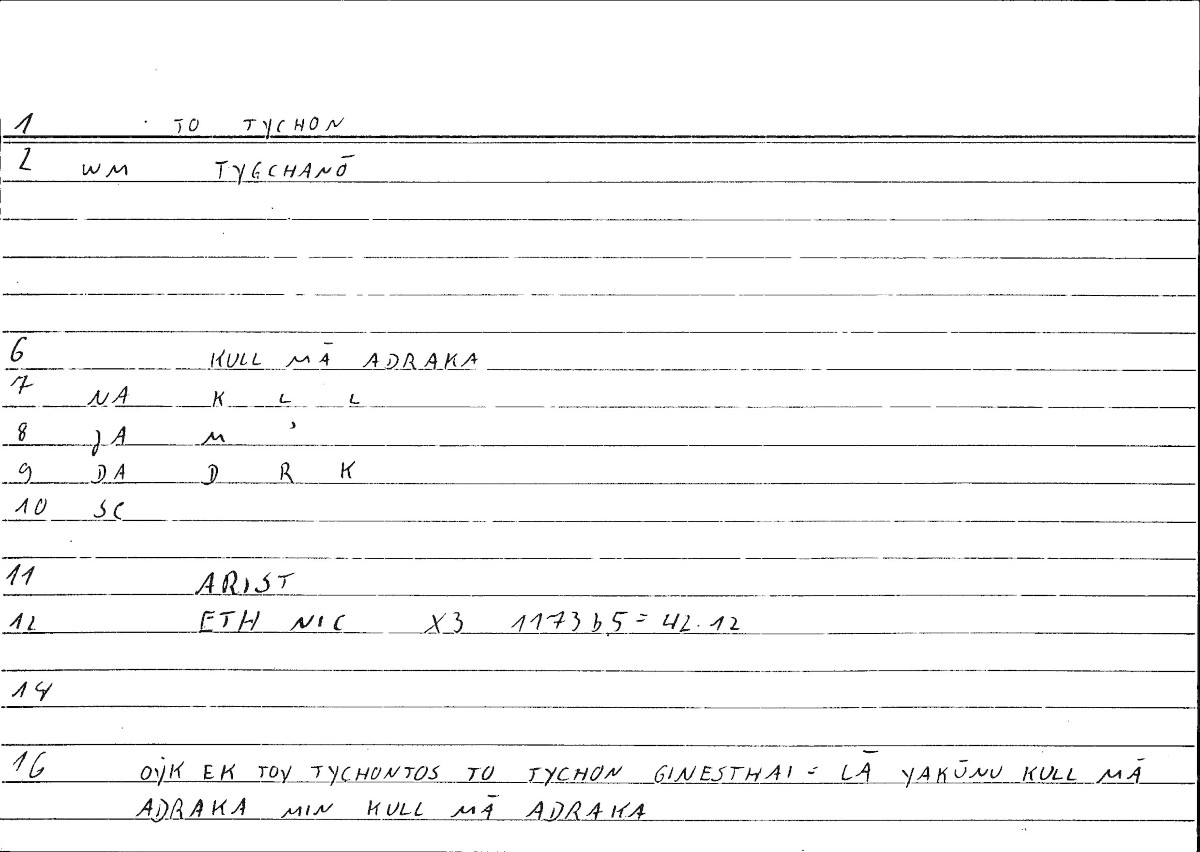 1 TO TYCHON
2 WM TYGCHANŌ
6 KULL MĀ ADRAKA
7 NA K L L
8 JA M ʾ
9 DA D R K
10 SC
11 ARIST
12 ETH NIC X3 1173b5=42.12
14
16 OYK EK TOY TYCHONTOS TO TYCHON GINESTHAI = LĀ YAKŪNU KULL MĀ
ADRAKA MIN KULL MĀ ADRAKA